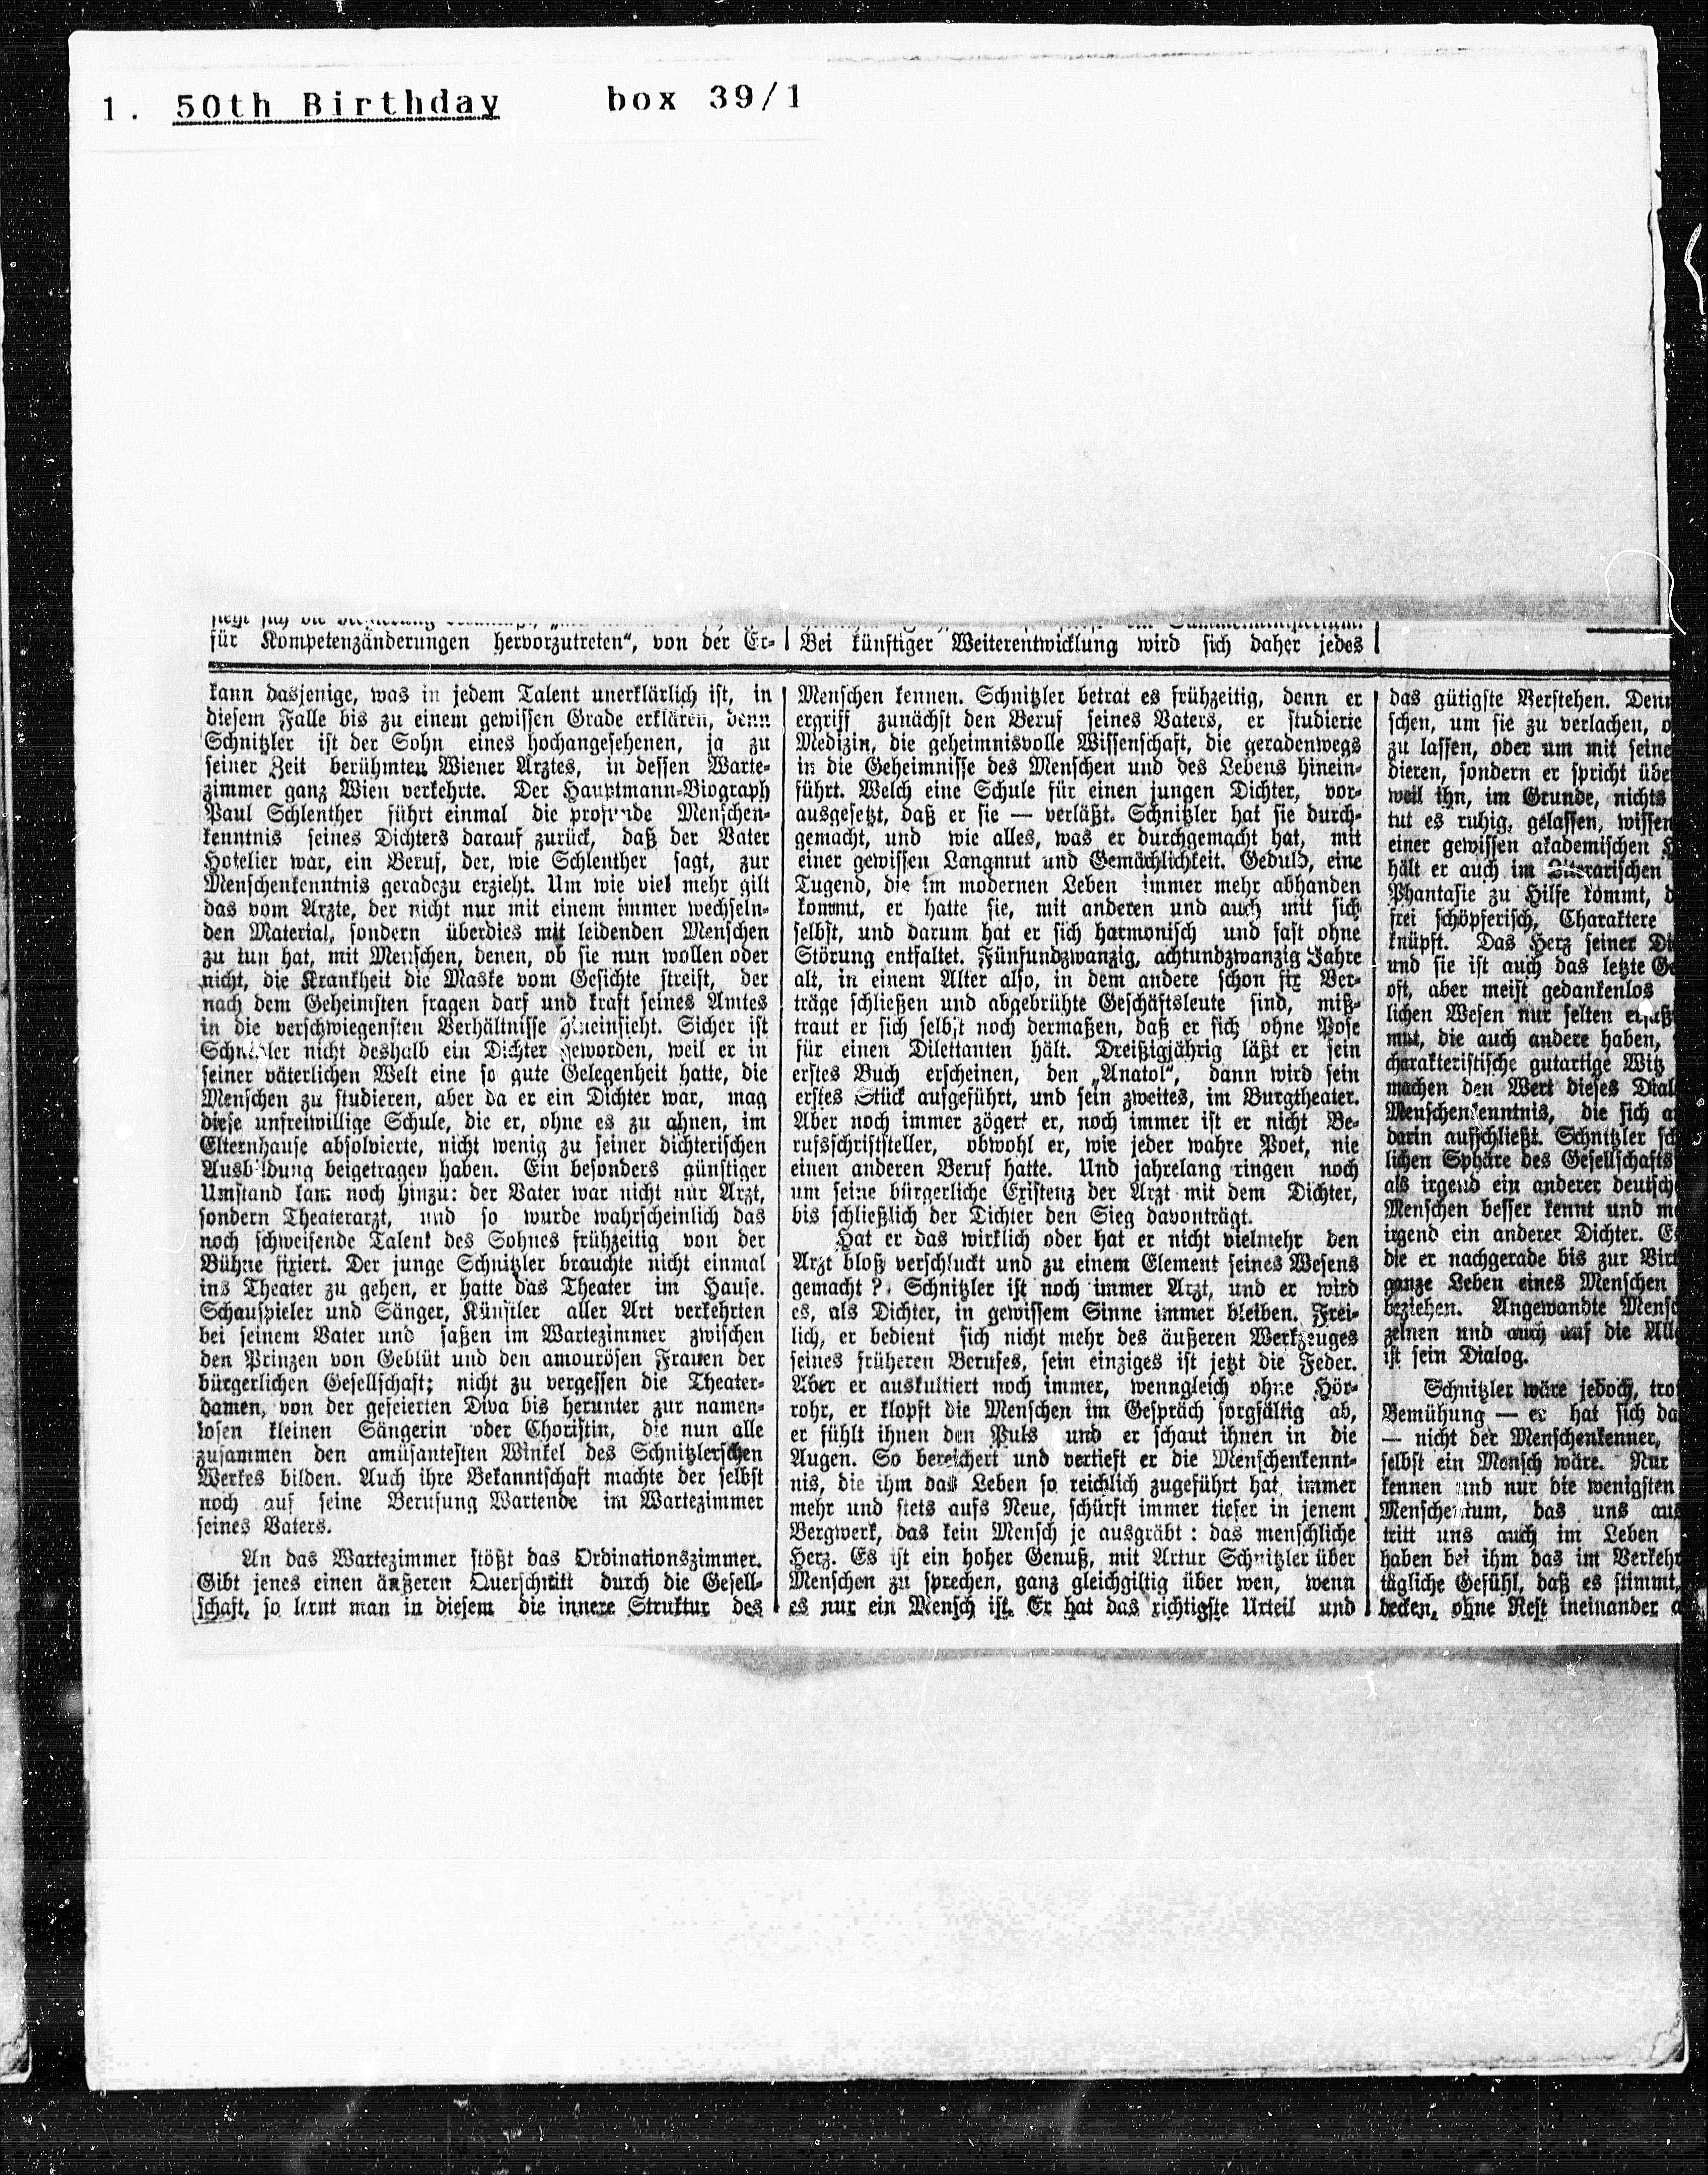 1. 50th Birthday box 39/1
für Kompetenzänderungen hervorzutreten“, von der Er-
kann dasjenige, was in jedem Talent unerklärlich ist, in
diesem Falle bis zu einem gewissen Grade erklären, denn
Schnitzler ist der Sohn eines hochangesehenen, ja zu
seiner Zeit berühmten Wiener Arztes, in dessen Warte-
zimmer ganz Wien verkehrte. Der Hauptmann-Biograph
Paul Schlenther führt einmal die profunde Menschen-
kenntnis seines Dichters darauf zurück, daß der Vater
Hotelier war, ein Beruf, der, wie Schlenther sagt, zur
Menschenkenntnis geradezu erzieht. Um wie viel mehr gilt
das vom Arzte, der nicht nur mit einem immer wechseln-
den Material, sondern überdies mit leidenden Menschen
zu tun hat, mit Menschen, denen, ob sie nun wollen oder
nicht, die Krankheit die Maske vom Gesichte streift, der
nach dem Geheimsten fragen darf und kraft seines Amtes
in die verschwiegensten Verhältnisse hineinsieht. Sicher ist
Schnitzler nicht deshalb ein Dichter geworden, weil er in
seiner väterlichen Welt eine so gute Gelegenheit hatte, die
Menschen zu studieren, aber da er ein Dichter war, mag
diese unfreiwillige Schule, die er, ohne es zu ahnen, im
Elternhause absolvierte, nicht wenig zu seiner dichterischen
Ausbildung beigetragen haben. Ein besonders günstiger
Umstand kam noch hinzu: der Vater war nicht nur Arzt,
sondern Theaterarzt, und so wurde wahrscheinlich das
noch schweifende Talent des Sohnes frühzeitig von der
Bühne fixiert. Der junge Schnitzler brauchte nicht einmal
ins Theater zu gehen, er hatte das Theater im Hause.
Schauspieler und Sänger, Künstler aller Art verkehrten
bei seinem Vater und saßen im Wartezimmer zwischen
den Prinzen von Geblüt und den amourösen Frauen der
bürgerlichen Gesellschaft; nicht zu vergessen die Theater-
damen, von der gefeierten Diva bis herunter zur namen-
losen kleinen Sängerin oder Choristin, die nun alle
zusammen den amüsantesten Winkel des Schnitzlerschen
Werkes bilden. Auch ihre Bekanntschaft machte der selbst
noch auf seine Berufung Wartende im Wartezimmer
seines Vaters.
An das Wartezimmer stößt das Ordinationszimmer.
Gibt jenes einen äußeren Querschnitt durch die Gesell-
schaft, so lernt man in diesem die innere Struktur des
Bei künftiger Weiterentwicklung wird sich daher jedes
Menschen kennen. Schnitzler betrat es frühzeitig, denn er
ergriff zunächst den Beruf seines Vaters, er studierte
Medizin, die geheimnisvolle Wissenschaft, die geradenwegs
in die Geheimnisse des Menschen und des Lebens hinein-
führt. Welch eine Schule für einen jungen Dichter, vor-
ausgesetzt, daß er sie — verläßt. Schnitzler hat sie durch-
gemacht, und wie alles, was er durchgemacht hat, mit
einer gewissen Langmut und Gemächlichkeit. Geduld, eine
Tugend, die im modernen Leben immer mehr abhanden
kommt, er hatte sie, mit anderen und auch mit sich
selbst, und darum hat er sich harmonisch und fast ohne
Störung entfaltet. Fünfundzwanzig, achtundzwanzig Jahre
alt, in einem Alter also, in dem andere schon fix Ver-
träge schließen und abgebrühte Geschäftsleute sind, miß-
traut er sich selbst noch dermaßen, daß er sich ohne Pose
für einen Dilettanten hält. Dreißigjährig läßt er sein
erstes Buch erscheinen, den „Anatol“, dann wird sein
erstes Stück aufgeführt, und sein zweites, im Burgtheater.
Aber noch immer zögert er, noch immer ist er nicht Be-
rufsschriftsteller, obwohl er, wie jeder wahre Poet, nie
einen anderen Beruf hatte. Und jahrelang ringen noch
um seine bürgerliche Existenz der Arzt mit dem Dichter,
bis schließlich der Dichter den Sieg davonträgt.
Hat er das wirklich oder hat er nicht vielmehr den
Arzt bloß verschluckt und zu einem Element seines Wesens
gemacht? Schnitzler ist noch immer Arzt, und er wird
es, als Dichter, in gewissem Sinne immer bleiben. Frei-
lich, er bedient sich nicht mehr des äußeren Werkzeuges
seines früheren Berufes, sein einziges ist jetzt die Feder.
Aber er auskultiert noch immer, wenngleich ohne Hör-
rohr, er klopft die Menschen im Gespräch sorgfältig ab,
er fühlt ihnen den Puls und er schaut ihnen in die
Augen. So bereichert und vertieft er die Menschenkennt-
nis, die ihm das Leben so reichlich zugeführt hat, immer
mehr und stets aufs Neue, schürft immer tiefer in jenem
Bergwerk, das kein Mensch je ausgräbt: das menschliche
Herz. Es ist ein hoher Genuß, mit Artur Schnitzler über
Menschen zu sprechen, ganz gleichgiltig über wen, wenn
es nur ein Mensch ist. Er hat das richtigste Urteil und
das gütigste Verstehen. Denn
schen, um sie zu verlachen, o
zu lassen, oder um mit seine
dieren, sondern er spricht übe
weil ihn, im Grunde, nichts
tut es ruhig, gelassen, wissen
einer gewissen akademischen
hält er auch im Literarischen
Phantasie zu Hilfe kommt, d
frei schöpferisch, Charaktere
knüpft. Das Herz seiner Di
und sie ist auch das letzte Ge
oft, aber meist gedankenlos
lichen Wesen nur selten erfaßt
mut, die auch andere haben,
charakteristische gutartige Witz
machen den Wert dieses Dial
Menschenkenntnis, die sich a
darin aufschließt. Schnitzler sch
lichen Sphäre des Gesellschafts
als irgend ein anderer deutsche
Menschen besser kennt und me
irgend ein anderer Dichter. Es
die er nachgerade bis zur Virt
ganze Leben eines Menschen
beziehen. Angewandte Mensc
zelnen und auch auf die Allg
ist sein Dialog.
Schnitzler wäre jedoch, trotz
Bemühung — er hat sich da
— nicht der Menschenkenner,
selbst ein Mensch wäre. Nur
kennen und nur die wenigsten
Menschentum, das uns aus
tritt uns auch im Leben
haben bei ihm das im Verkehr
tägliche Gefühl, daß es stimmt,
decken, ohne Rest ineinander a